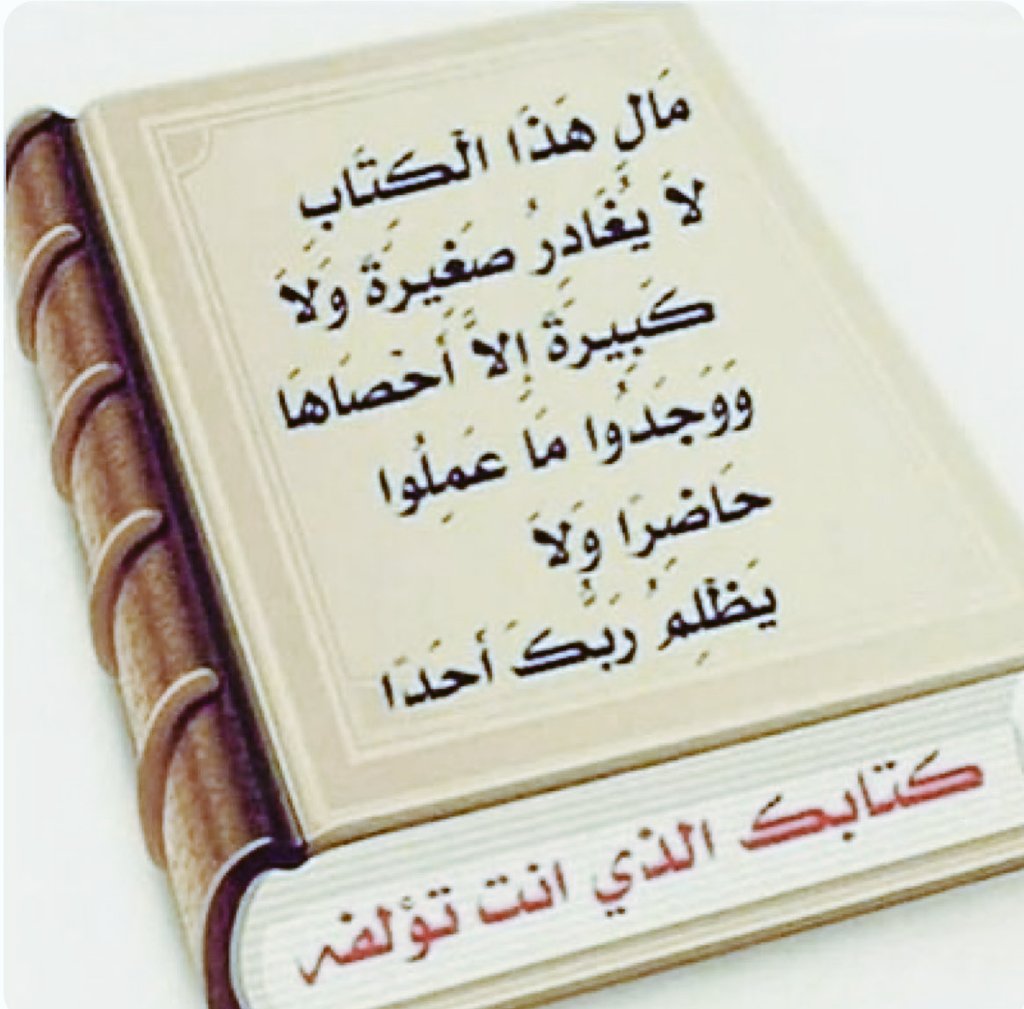 مَالِ هَذَا الْكَتَاب
لاَ يُغَادِرُ صَغِيرَةً وَلاَ
كَبِيرَةً إِلاَّ أَحْصَاهَا
وَوَجَدُوا مَا عَمِلُوا
حَاضِرًا وَلاَ
يَظْلِمُ رَبُّكَ أَحَدًا
كتابك الذي انت تؤلفه